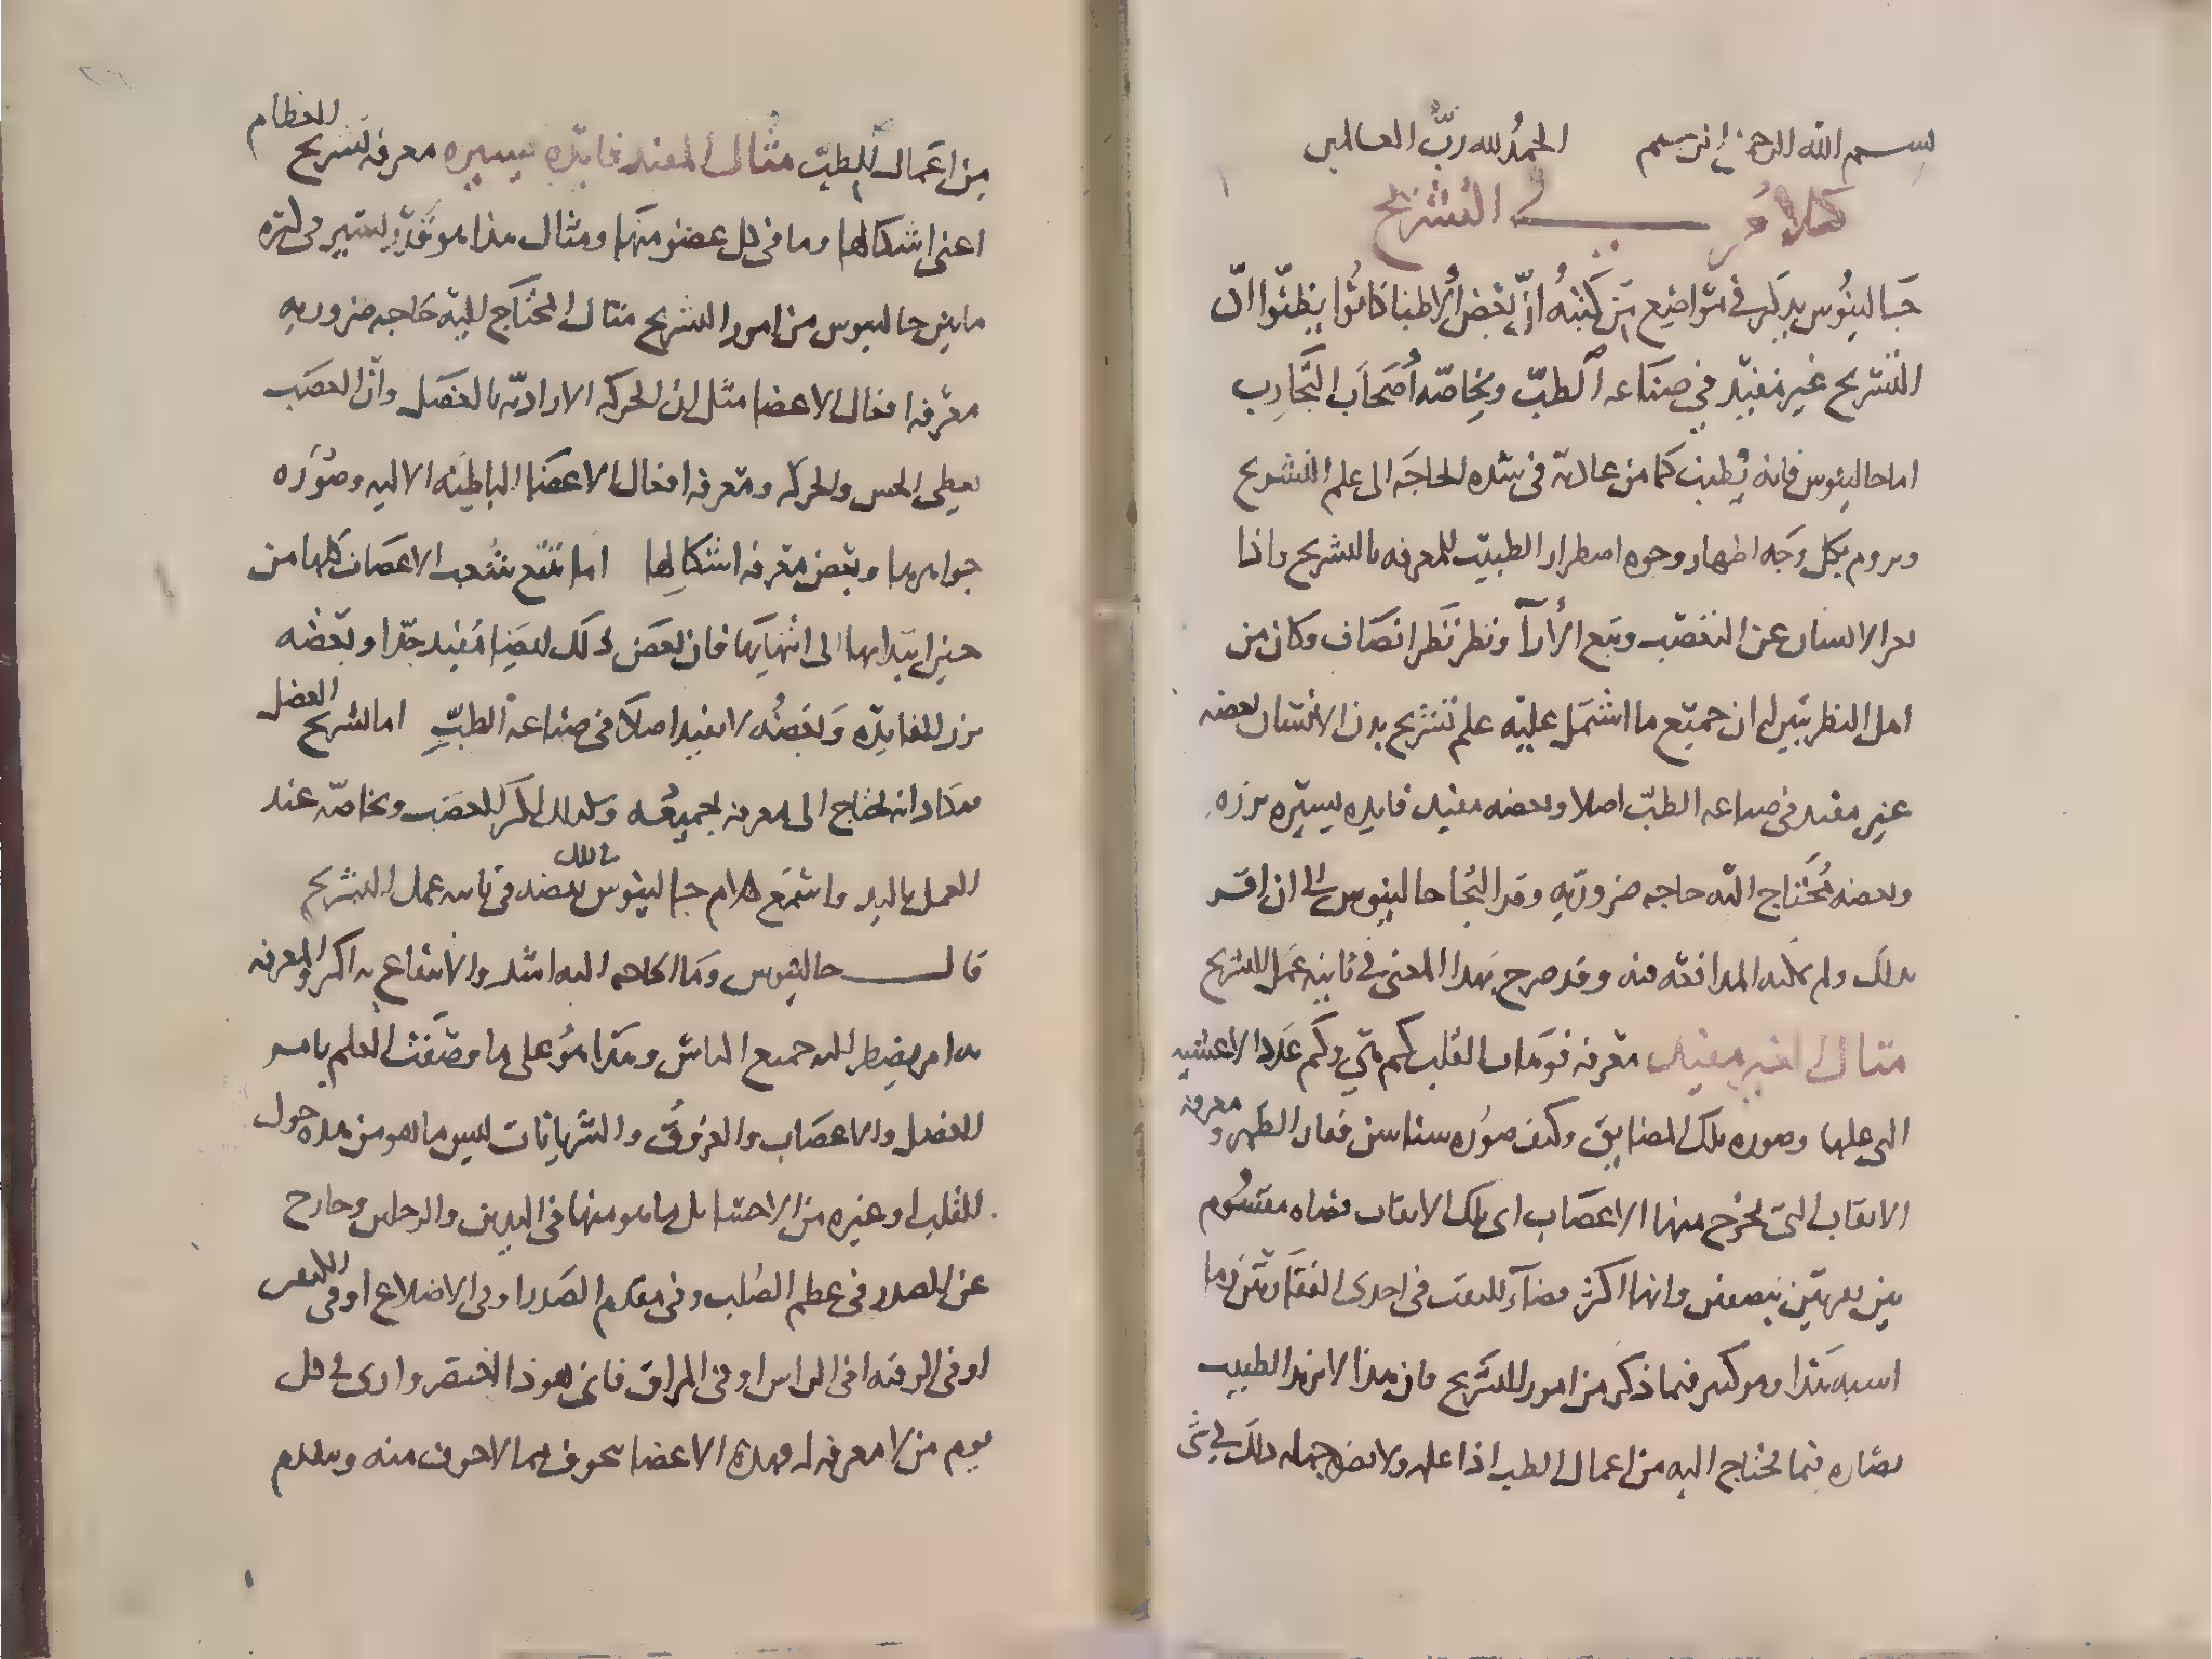 بسم الله الرحمن الرحيم الحمد لله رب العالمين
كلام في التشريح
جالينوس يذكر في مواضع من كتبه ان بعض الاطبا كانوا يظنوا ان
التشريح غير مفيد في صناعه الطب وبخاصه اصحاب التجارب
اما جالينوس فانه يطنب كما من عادته في شده الحاجه الى علم التشريح
ويروم بكل وجه اظهار وجوه اضطرار الطبيب للمعرفه بالتشريح واذا
الانسان عن التعصب وتتبع الارا ونظر نظر انصاف وكان من
اهل النظر تبين له ان جميع ما اشتمل عليه علم تشريح بدن الانسان بعضه
غير مفيد في صناعه الطب اصلا وبعضه مفيد فايده يسيره نزره
وبعضه يحتاج اليه حاجه ضروريه وقد التجا جالينوس الى ان اقر
بذلك ولم يمكنه المدافعه فيه وقد صرح بهذا المعنى في ثانيه عمل التشريح
مثال الغير مفيد معرفه القلب كم هي وكم عدد الاغشيه
التي عليها وصوره تلك المضايق وكيف صوره سناسن فقار الظهر ومعرفه
الاثقاب التي تخرج منها الاعصاب اي تلك الاثقاب تضاه مقسوم
بين فقرتين بنصفين وايها اكثر فضاء للثقب في احدى الفقارتين وما
اشبه هذا وهو كثير فيما ذكر من امور التشريح فان هذا لا يزيد الطبيب
بصاره فيما يحتاج اليه من اعمال الطب اذا علمه ولا يضر جهله ذلك في شي
من اعمال الطب مثال المفيد فايده يسيره معرفه تشريح العظام
اعني اشكالها وما في كل عضو منها ومثال هذا هو نزر يسير في كثره
ما بين جالينوس من امور التشريح مثال المحتاج اليه حاجه ضروريه
معرفه افعال الاعضا مثل ان الحركه الاراديه بالعضل وان العصب
يعطى الحس والحركه ومعرفه افعال الاعضا الباطنه الاليه وصوره
جواهرها وبعض معرفه اشكالها اما تتبع شعب الاعصاب كلها من
حين ابتدايها الى انتهايها فان بعض ذلك ايضا مفيد جدا وبعضه
نزر الفايده وبعضه لا يفيد اصلا في صناعه الطب اما تشريح العضل
فيكاد انه يحتاج الى معرفه جميعه وكذلك اكثر العصب وبخاصه عند
العمل باليد واسمع كلام جالينوس في ذلك بنصه في ثانيه عمل التشريح
قال جالينوس وما الحاجه اليه اشد والانتفاع به اكثر والمعرفه
به امر يضطر اليه جميع الناس وهذا هو على ما وصفت العلم بامر
العضل والاعصاب والعروق والشريانات ليس ما هو من هذه حول
القلب او غيره من الاحشا بل ما هو منها في اليدين والرجلين وخارج
عن الصدر في عظم الصلب وفي مقدم الصدر او في الاضلاع او في
او في الرقبه او في الراس او في المراق فاني هوذا اختصر وارى في كل
يوم من لا معرفه له بهذه الاعضا يخوف مما لا خوف منه ويقدم